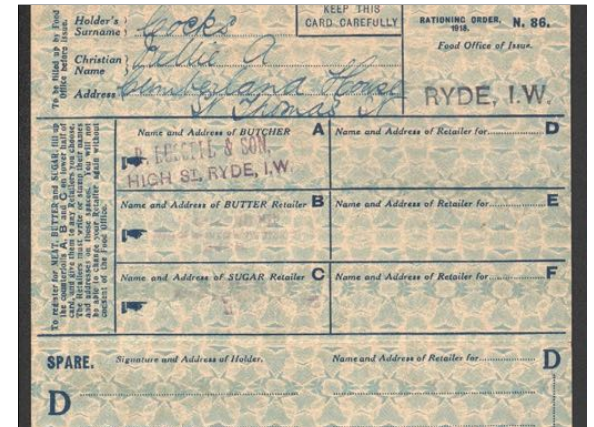 To be filled up by Food
Office before issue.
Holder's
Surname
Cocks
Christian
Name
A
Address
House
St Thomas St
KEEP THIS
CARD CAREFULLY
RATIONING ORDER, 1918.
N. 86.
Food Office of Issue.
RYDE, I.W.
To register for MEAT, BUTTER and SUGAR, fill up
the counterfoils A, B and C on lower half of
card, and give them to any Retailers you choose.
The Retailers must write or stamp their names
and addresses on those spaces. You will not
be able to change your Retailer again without
consent of the Food Office.
Name and Address of BUTCHER A
& SON,
HIGH ST, RYDE, I.W.
Name and Address of Retailer for D
Name and Address of BUTTER Retailer B
Name and Address of Retailer for E
Name and Address of SUGAR Retailer C
Name and Address of Retailer for F
SPARE.
Signature and Address of Holder.
Name and Address of Retailer for D
D